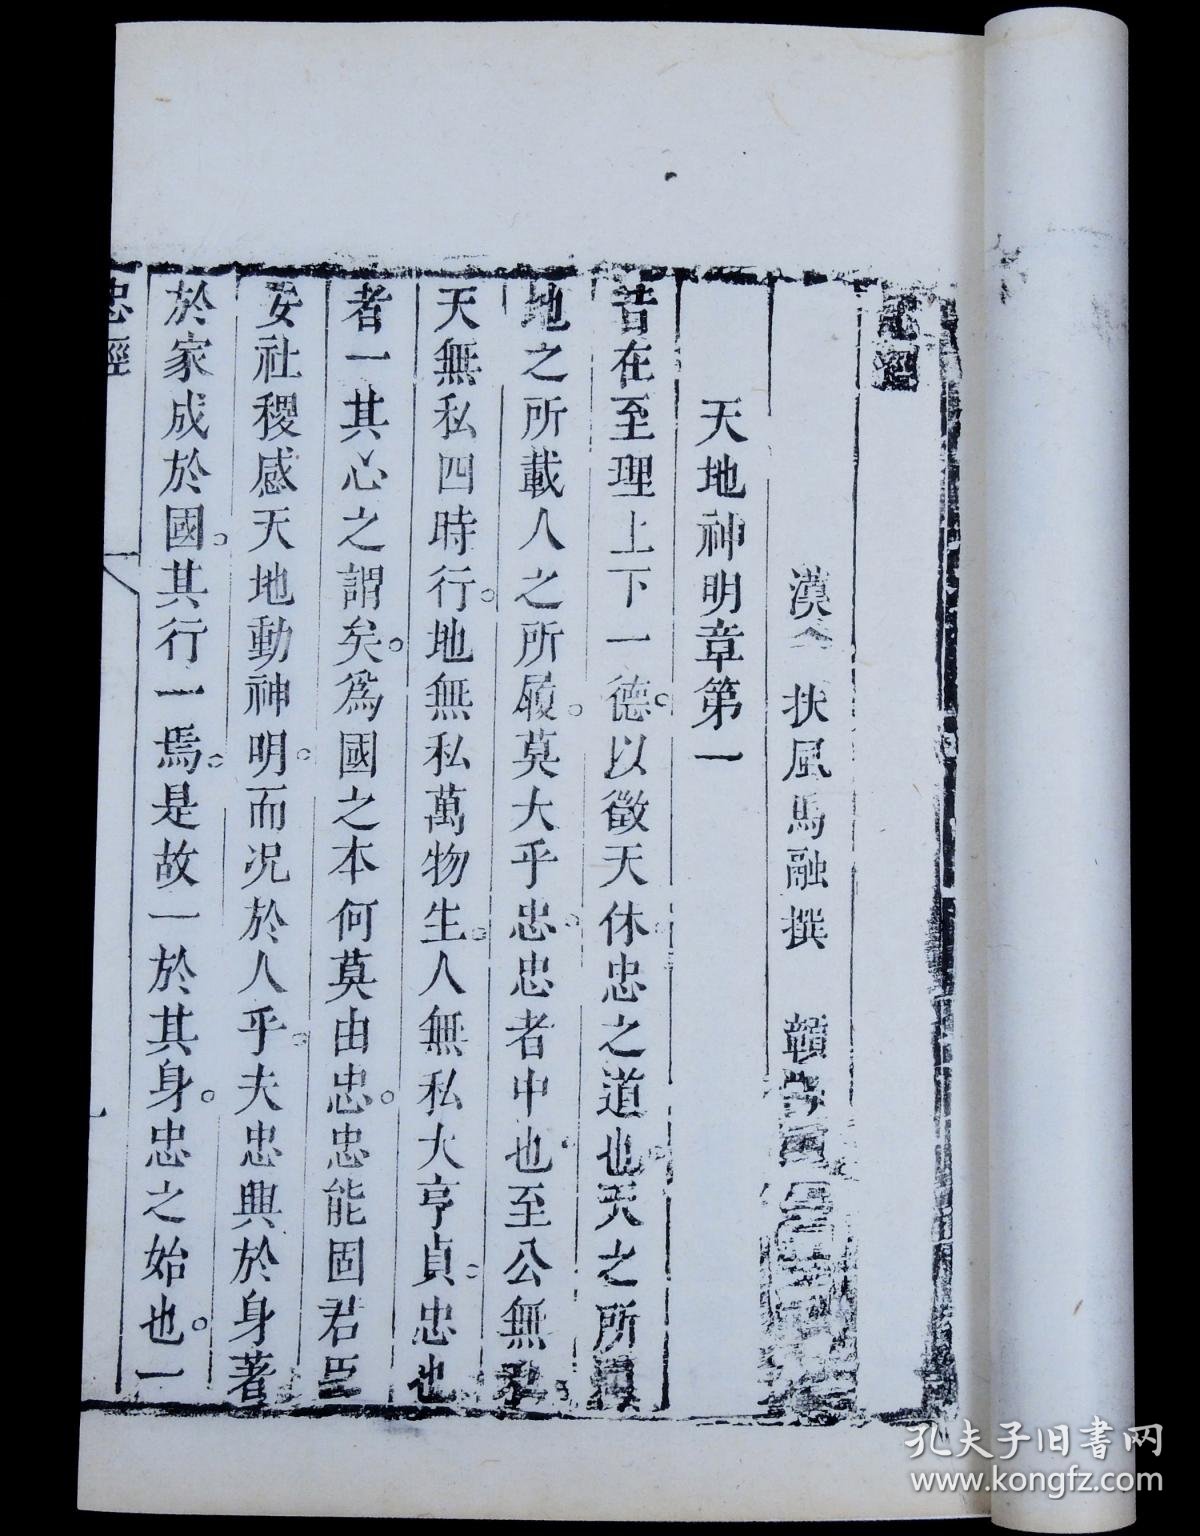 忠經
漢 扶風馬融撰 贛
天地神明章第一
昔在至理上下一德。以徵天休。忠之道也。天之所
地之所載人之所履。莫大乎忠。忠者中也。至公無私
天無私四時行。地無私萬物生。人無私大亨貞。忠也
者一其心之謂矣。爲國之本何莫由忠。忠能固君臣
安社稷感天地動神明。而况於人乎。夫忠興於身著
於家成於國。其行一焉。是故一於其身。忠之始也。一
忠經
孔夫子旧書网
www.kongfz.com